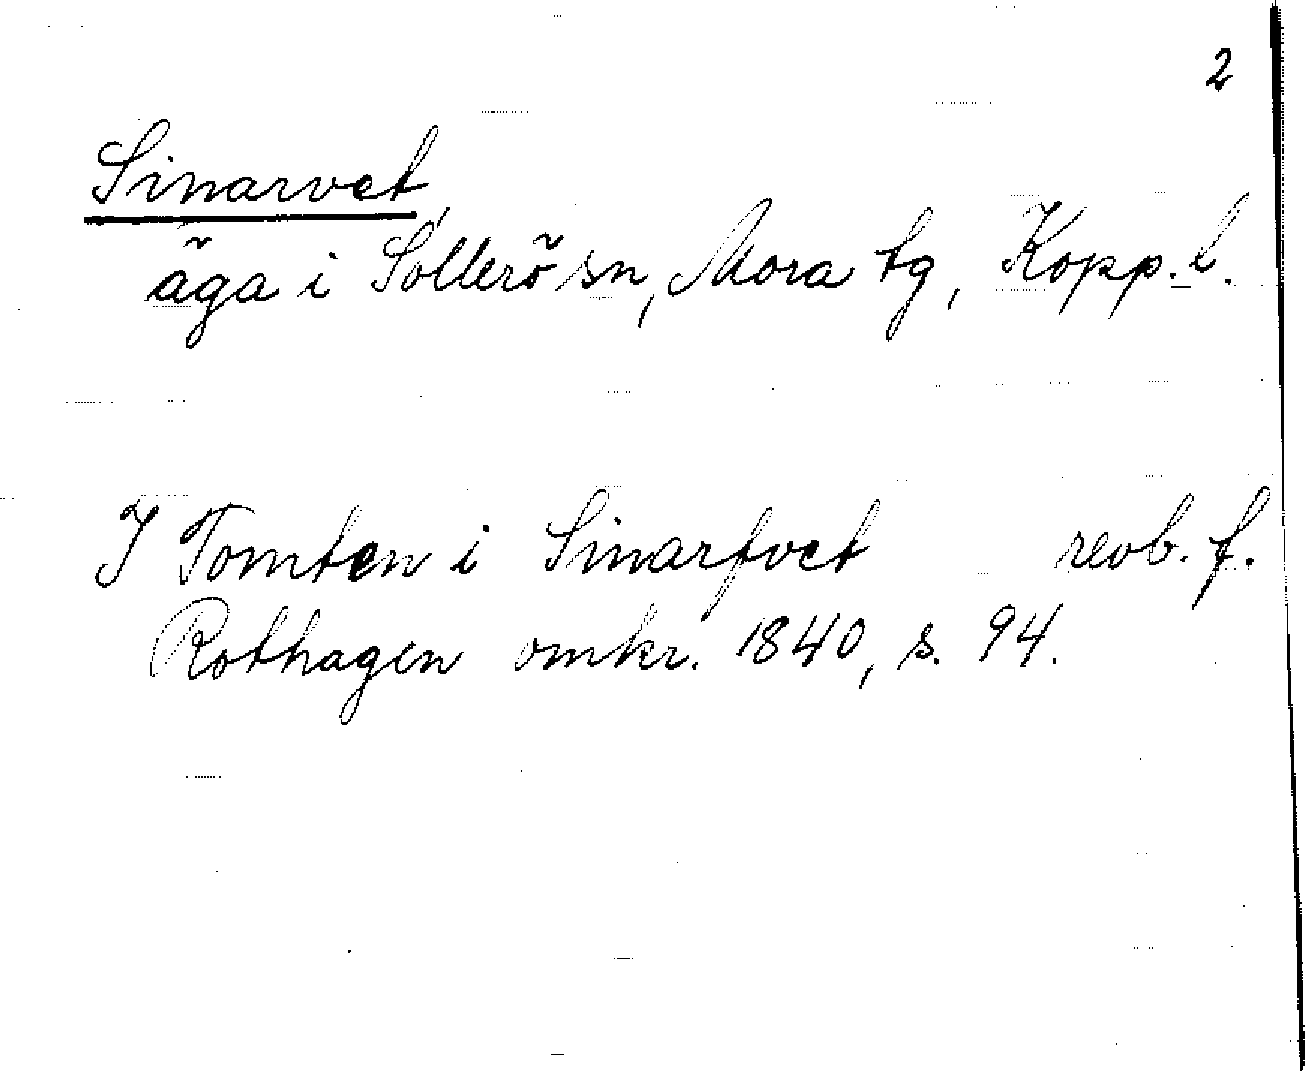 2
Sinarvet,
äga i Sollerö sn, Mora tg, Kopp. l.
I Tomten i Sinarfvet revb. f.
Rothagen omkr. 1840, s. 94.